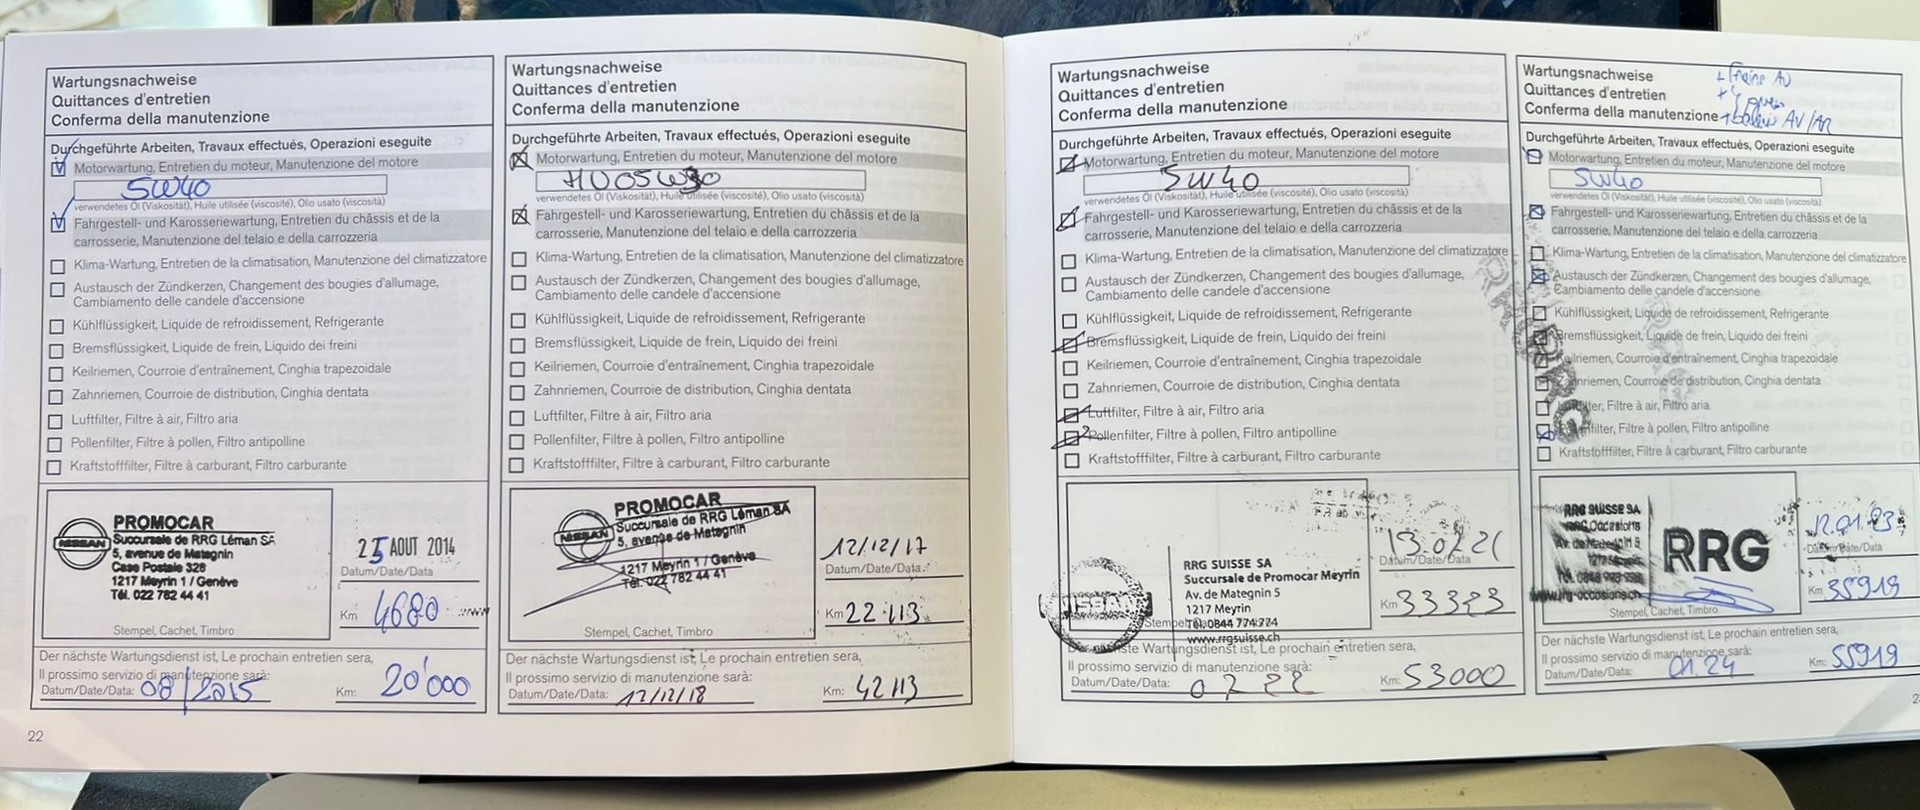 Wartungsnachweise
Quittances d'entretien
Conferma della manutenzione
Durchgeführte Arbeiten, Travaux effectués, Operazioni eseguite
Motorwartung, Entretien du moteur, Manutenzione del motore
5W40
verwendetes Öl (Viskosität), Huile utilisée (viscosité), Olio usato (viscosità)
Fahrgestell- und Karosseriewartung, Entretien du châssis et de la
carrosserie, Manutenzione del telaio e della carrozzeria
Klima-Wartung, Entretien de la climatisation, Manutenzione del climatizzatore
Austausch der Zündkerzen, Changement des bougies d'allumage,
Cambiamento delle candele d'accensione
Kühlflüssigkeit, Liquide de refroidissement, Refrigerante
Bremsflüssigkeit, Liquide de frein, Liquido dei freini
Keilriemen, Courroie d'entraînement, Cinghia trapezoidale
Zahnriemen, Courroie de distribution, Cinghia dentata
Luftfilter, Filtre à air, Filtro aria
Pollenfilter, Filtre à pollen, Filtro antipolline
Kraftstofffilter, Filtre à carburant, Filtro carburante
NISSAN
PROMOCAR
Succursale de RRG Léman SA
5, avenue de Mategnin
Case Postale 326
1217 Meyrin 1 / Genève
Tél. 022 782 44 41
Stempel, Cachet, Timbro
25 AOUT 2014
Datum/Date/Data
Km 4680
Der nächste Wartungsdienst ist, Le prochain entretien sera,
Il prossimo servizio di manutenzione sarà:
Datum/Date/Data: 08/2015 Km: 20'000
22
Wartungsnachweise
Quittances d'entretien
Conferma della manutenzione
Durchgeführte Arbeiten, Travaux effectués, Operazioni eseguite
Motorwartung, Entretien du moteur, Manutenzione del motore
verwendetes Öl (Viskosität), Huile utilisée (viscosité), Olio usato (viscosità)
Fahrgestell- und Karosseriewartung, Entretien du châssis et de la
carrosserie, Manutenzione del telaio e della carrozzeria
Klima-Wartung, Entretien de la climatisation, Manutenzione del climatizzatore
Austausch der Zündkerzen, Changement des bougies d'allumage,
Cambiamento delle candele d'accensione
Kühlflüssigkeit, Liquide de refroidissement, Refrigerante
Bremsflüssigkeit, Liquide de frein, Liquido dei freini
Keilriemen, Courroie d'entraînement, Cinghia trapezoidale
Zahnriemen, Courroie de distribution, Cinghia dentata
Luftfilter, Filtre à air, Filtro aria
Pollenfilter, Filtre à pollen, Filtro antipolline
Kraftstofffilter, Filtre à carburant, Filtro carburante
NISSAN
PROMOCAR
Succursale de RRG Léman SA
5, avenue de Mategnin
1217 Meyrin 1 / Genève
Tél. 022 782 44 41
Stempel, Cachet, Timbro
12/12/17
Datum/Date/Data
Km 22113
Der nächste Wartungsdienst ist, Le prochain entretien sera,
Il prossimo servizio di manutenzione sarà:
Datum/Date/Data: 12/12/18 Km: 42113
Wartungsnachweise
Quittances d'entretien
Conferma della manutenzione
Durchgeführte Arbeiten, Travaux effectués, Operazioni eseguite
Motorwartung, Entretien du moteur, Manutenzione del motore
5W40
verwendetes Öl (Viskosität), Huile utilisée (viscosité), Olio usato (viscosità)
Fahrgestell- und Karosseriewartung, Entretien du châssis et de la
carrosserie, Manutenzione del telaio e della carrozzeria
Klima-Wartung, Entretien de la climatisation, Manutenzione del climatizzatore
Austausch der Zündkerzen, Changement des bougies d'allumage,
Cambiamento delle candele d'accensione
Kühlflüssigkeit, Liquide de refroidissement, Refrigerante
Bremsflüssigkeit, Liquide de frein, Liquido dei freini
Keilriemen, Courroie d'entraînement, Cinghia trapezoidale
Zahnriemen, Courroie de distribution, Cinghia dentata
Luftfilter, Filtre à air, Filtro aria
Pollenfilter, Filtre à pollen, Filtro antipolline
Kraftstofffilter, Filtre à carburant, Filtro carburante
NISSAN
RRG SUISSE SA
Succursale de Promocar Meyrin
Av. de Mategnin 5
1217 Meyrin
Tél. 0844 774 774
www.rrgsuisse.ch
Datum/Date/Data
Km 33323
Der nächste Wartungsdienst ist, Le prochain entretien sera,
Il prossimo servizio di manutenzione sarà:
Datum/Date/Data: 07 22 Km: 53000
Wartungsnachweise
Quittances d'entretien
Conferma della manutenzione
+ freins AV
AV/AR
Durchgeführte Arbeiten, Travaux effectués, Operazioni eseguite
Motorwartung, Entretien du moteur, Manutenzione del motore
5W40
verwendetes Öl (Viskosität), Huile utilisée (viscosité), Olio usato (viscosità)
Fahrgestell- und Karosseriewartung, Entretien du châssis et de la
carrosserie, Manutenzione del telaio e della carrozzeria
Klima-Wartung, Entretien de la climatisation, Manutenzione del climatizzatore
Austausch der Zündkerzen, Changement des bougies d'allumage,
Cambiamento delle candele d'accensione
Kühlflüssigkeit, Liquide de refroidissement, Refrigerante
Bremsflüssigkeit, Liquide de frein, Liquido dei freini
Keilriemen, Courroie d'entraînement, Cinghia trapezoidale
Zahnriemen, Courroie de distribution, Cinghia dentata
Luftfilter, Filtre à air, Filtro aria
Pollenfilter, Filtre à pollen, Filtro antipolline
Kraftstofffilter, Filtre à carburant, Filtro carburante
RRG SUISSE SA
RRG Occasions
RRG
Stempel, Cachet, Timbro
12.01.23
Datum/Date/Data
Km 35919
Der nächste Wartungsdienst ist, Le prochain entretien sera,
Il prossimo servizio di manutenzione sarà:
Datum/Date/Data: 01.24 Km: 55919